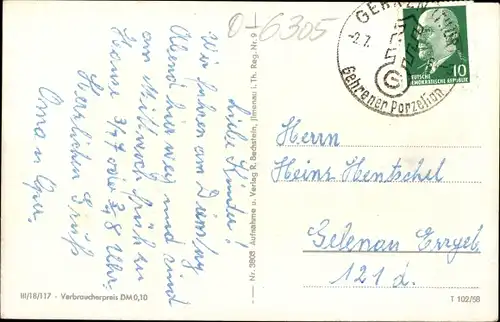 O-6305
Liebe Kinder!
Wir fahren am Dienstag
Abend hier weg und sind
am Mittwoch früh zu
Hause 3/47 oder 3/48 Uhr.
Herzlichen Gruß
Oma u. Opa.
III/18/117 - Verbraucherpreis DM 0,10
Nr. 3808 Aufnahme u. Verlag R. Bechstein, Ilmenau i. Th. Reg. Nr. 9
GEHREN (THÜR
-2.7.
Gehrener Porzellan
DEUTSCHE
DEMOKRATISCHE REPUBLIK
10
Herrn
Heinz Hentschel
Gelenau Erzgeb.
121 d.
T 102/58